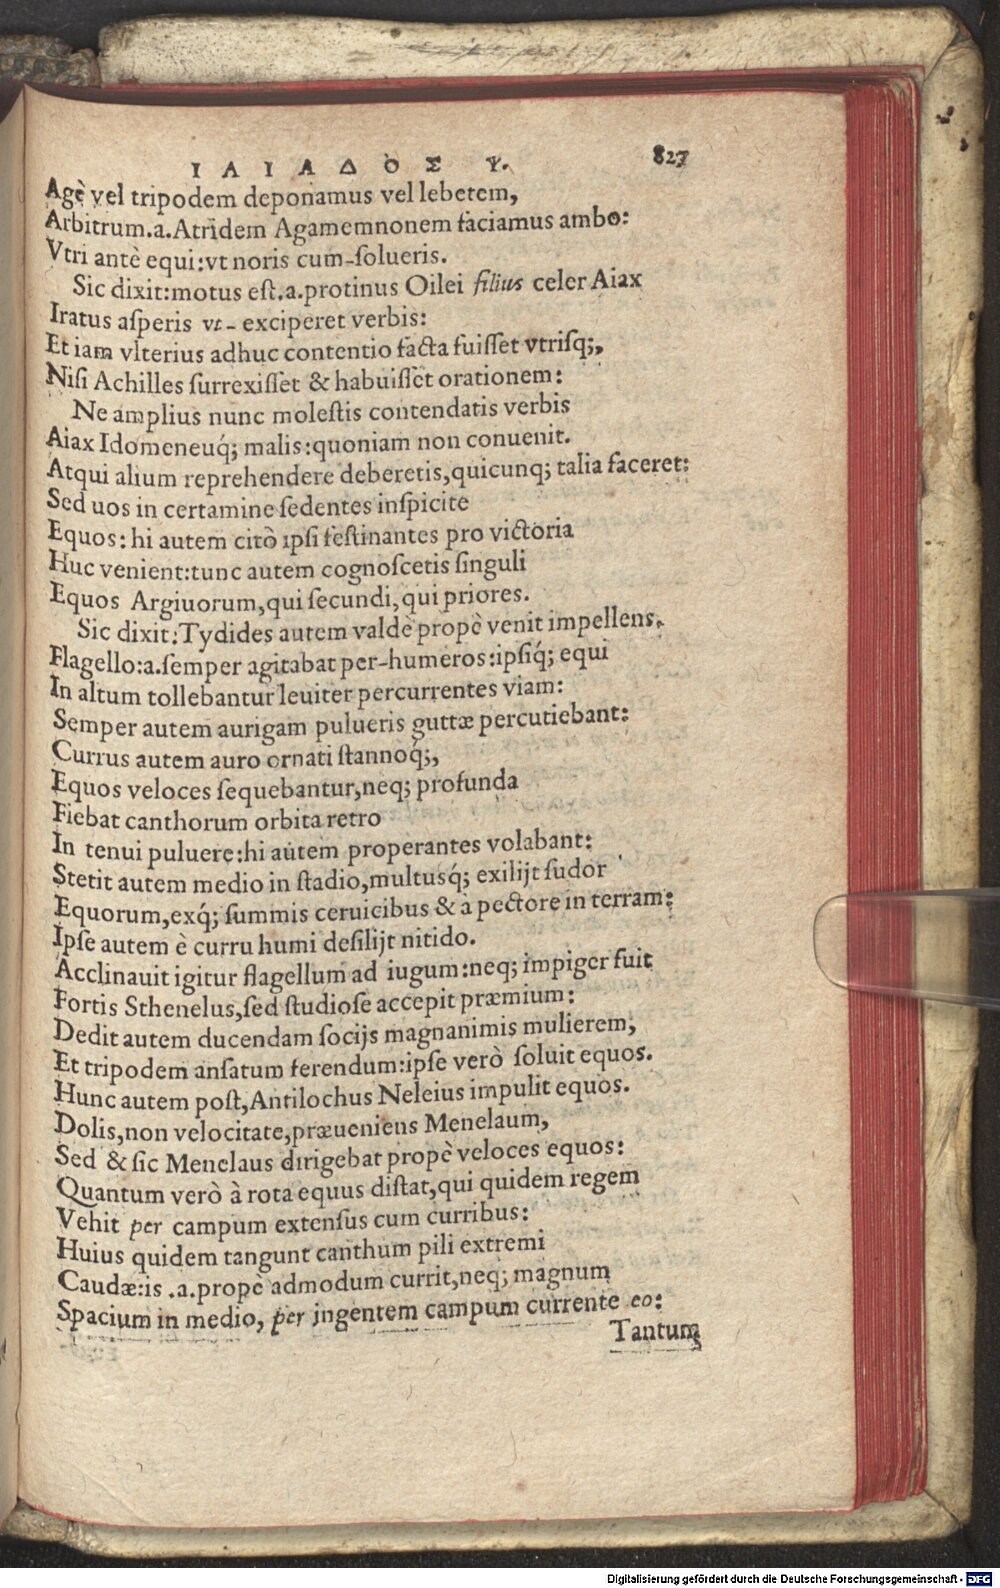 ΙΛΙΑΔΟΣ Ψ. 827
Agè vel tripodem deponamus vel lebetem,
Arbitrum.a.Atridem Agamemnonem faciamus ambo:
Vtri antè equi:vt noris cum-ſolueris.
Sic dixit:motus eſt.a.protinus Oilei filius celer Aiax
Iratus aſperis vt- exciperet verbis:
Et iam vlterius adhuc contentio facta fuiſſet vtriſq;,
Niſi Achilles ſurrexiſſet & habuiſſet orationem:
Ne amplius nunc moleſtis contendatis verbis
Aiax Idomeneuq́; malis:quoniam non conuenit.
Atqui alium reprehendere deberetis,quicunq; talia faceret:
Sed uos in certamine ſedentes inſpicite
Equos: hi autem citò ipſi feſtinantes pro victoria
Huc venient:tunc autem cognoſcetis ſinguli
Equos Argiuorum,qui ſecundi,qui priores.
Sic dixit:Tydides autem valdè propè venit impellens,
Flagello:a.ſemper agitabat per-humeros:ipſiq́; equi
In altum tollebantur leuiter percurrentes viam:
Semper autem aurigam pulueris guttæ percutiebant:
Currus autem auro ornati ſtannoq́;,
Equos veloces ſequebantur,neq; profunda
Fiebat canthorum orbita retro
In tenui puluere:hi autem properantes volabant:
Stetit autem medio in ſtadio,multusq́; exilijt ſudor
Equorum,exq́; ſummis ceruicibus & à pectore in terram:
Ipſe autem è curru humi deſilijt nitido.
Acclinauit igitur flagellum ad iugum:neq; impiger fuit
Fortis Sthenelus,ſed ſtudioſe accepit præmium:
Dedit autem ducendam ſocijs magnanimis mulierem,
Et tripodem anſatum ferendum:ipſe verò ſoluit equos.
Hunc autem poſt,Antilochus Neleius impulit equos.
Dolis,non velocitate,præueniens Menelaum,
Sed & ſic Menelaus dirigebat propè veloces equos:
Quantum verò à rota equus diſtat,qui quidem regem
Vehit per campum extenſus cum curribus:
Huius quidem tangunt canthum pili extremi
Caudæ:is .a.propè admodum currit,neq; magnum
Spacium in medio, per ingentem campum currente eo:
Tantum
Digitalisierung gefördert durch die Deutsche Forschungsgemeinschaft - DFG